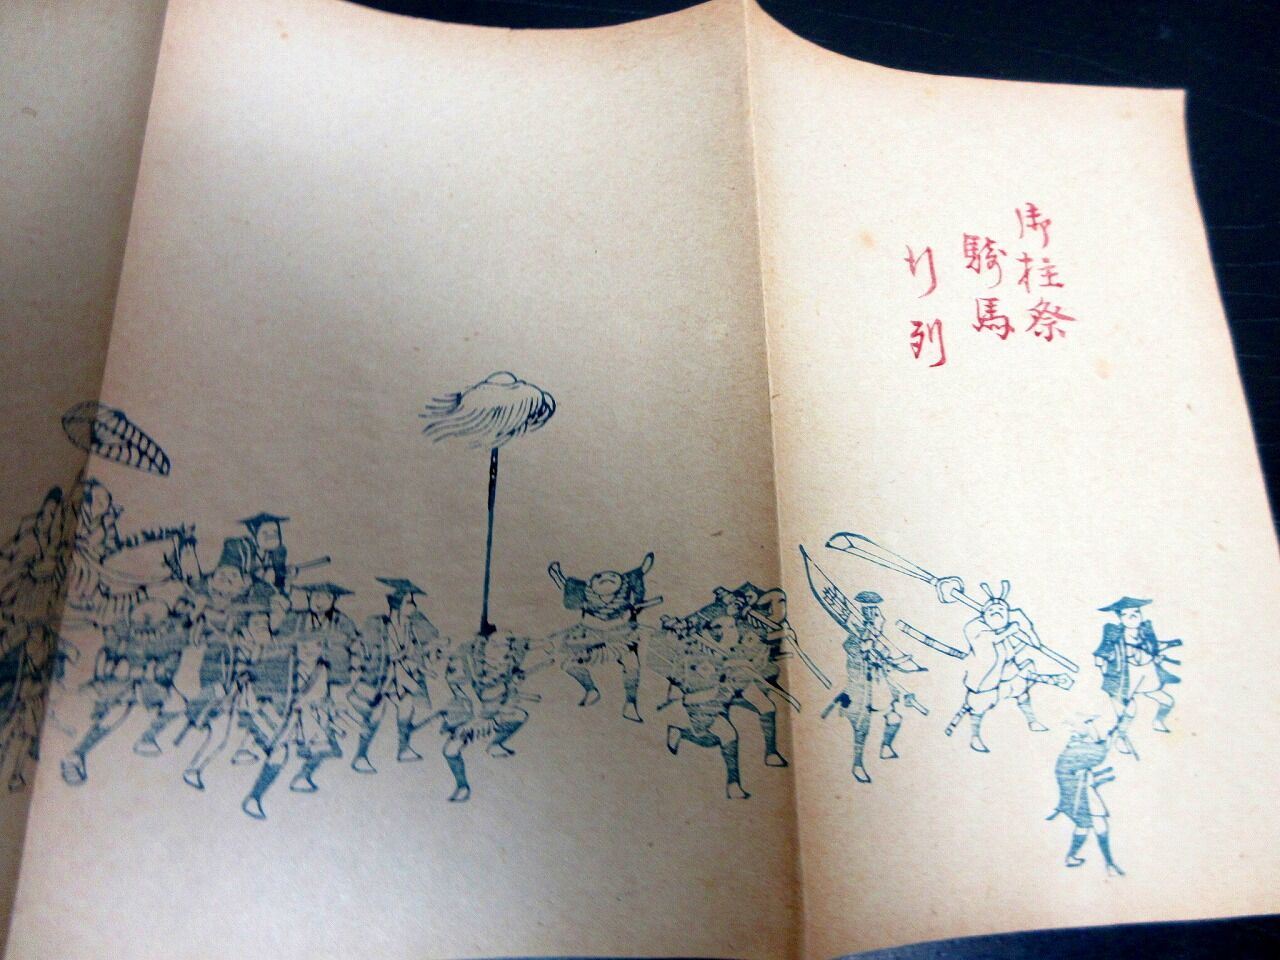 御柱祭
騎馬
行列